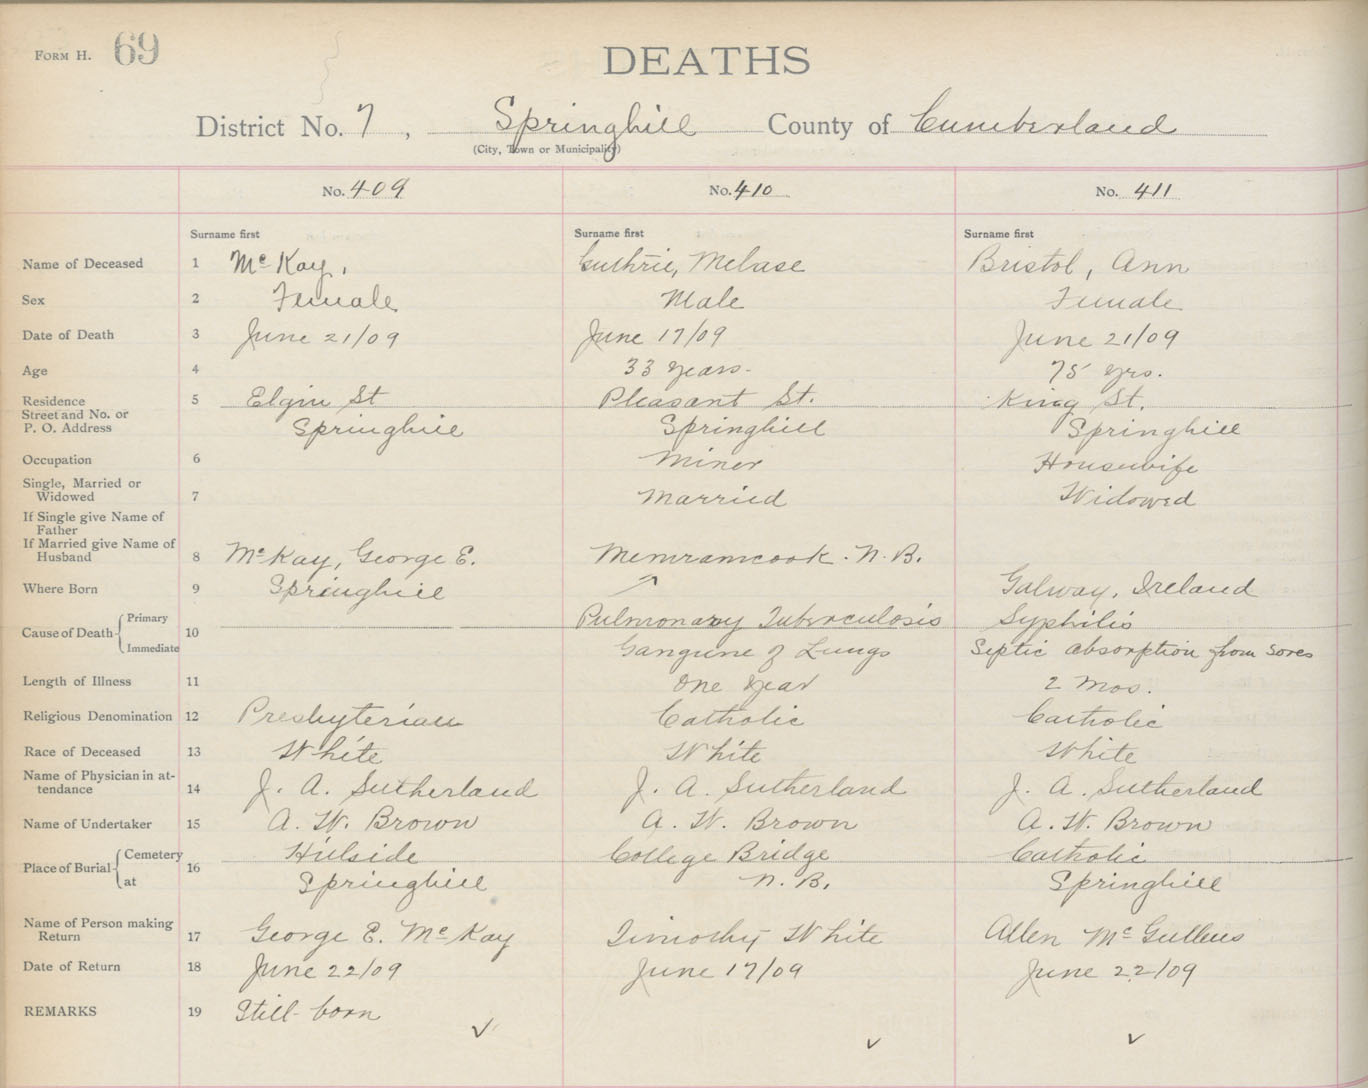 FORM H. 69
DEATHS
District No. 7, Springhill County of Cumberland
(City, Town or Municipality)
No. 409 No. 410 No. 411
Surname first Surname first Surname first
Name of Deceased 1 Mc Kay, Guthrie, Melase Bristol, Ann
Sex 2 Female Male Female
Date of Death 3 June 21/09 June 17/09 June 21/09
Age 4 33 years. 75 yrs.
Residence 5 Elgin St Pleasant St. King St.
Street and No. or
P. O. Address Springhill Springhill Springhill
Occupation 6 Miner Housewife
Single, Married or
Widowed 7 Married Widowed
If Single give Name of
Father
If Married give Name of
Husband 8 Mc Kay, George E. Memramcook. N. B.
Where Born 9 Springhill Galway, Ireland
Cause of Death Primary 10 Pulmonary Tuberculosis Syphilis
Immediate Gangrene of Lungs Septic absorption from sores
Length of Illness 11 One Year 2 Mos.
Religious Denomination 12 Presbyterian Catholic Catholic
Race of Deceased 13 White White White
Name of Physician in at-
tendance 14 J. A. Sutherland J. A. Sutherland J. A. Sutherland
Name of Undertaker 15 A. W. Brown A. W. Brown A. W. Brown
Place of Burial Cemetery 16 Hillside College Bridge Catholic
at Springhill N. B. Springhill
Name of Person making
Return 17 George E. Mc Kay Timothy White Allen Mc
Date of Return 18 June 22/09 June 17/09 June 22/09
REMARKS 19 Still-born